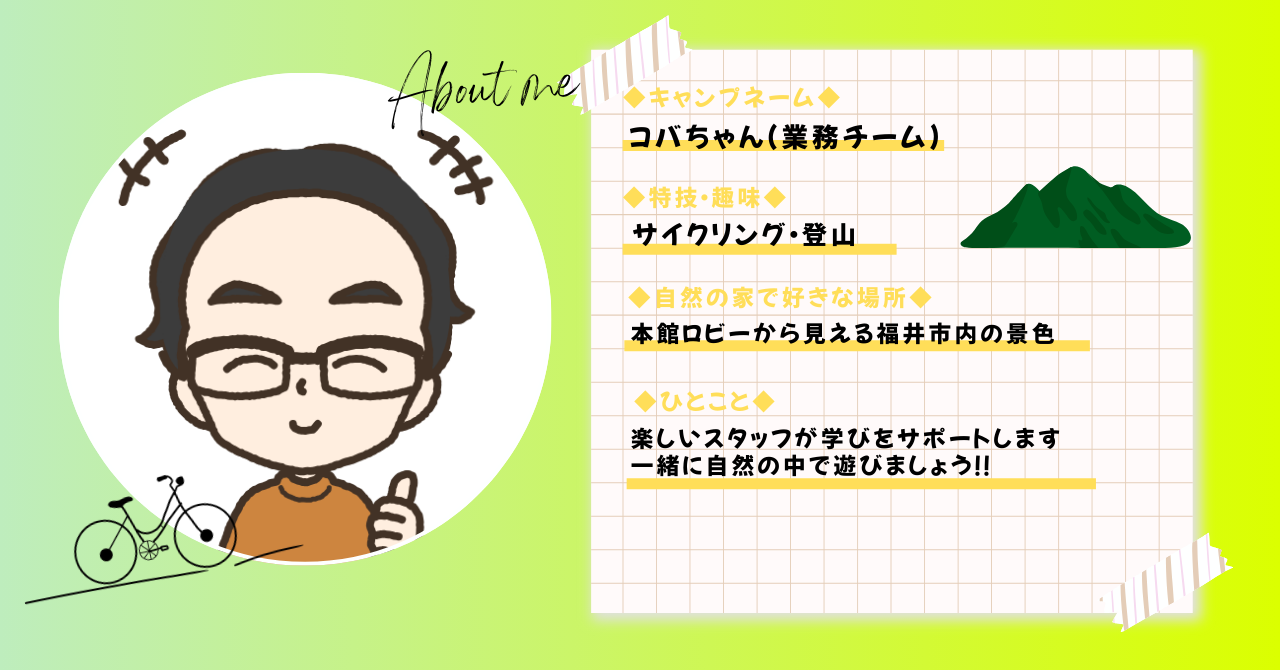 About me
◆キャンプネーム◆
コバちゃん(業務チーム)
◆特技・趣味◆
サイクリング・登山
◆自然の家で好きな場所◆
本館ロビーから見える福井市内の景色
◆ひとこと◆
楽しいスタッフが学びをサポートします
一緒に自然の中で遊びましょう!!